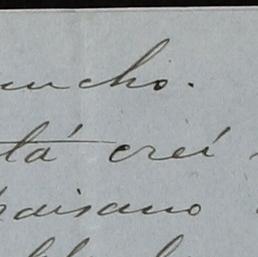 mucho.
tá creí
paisano